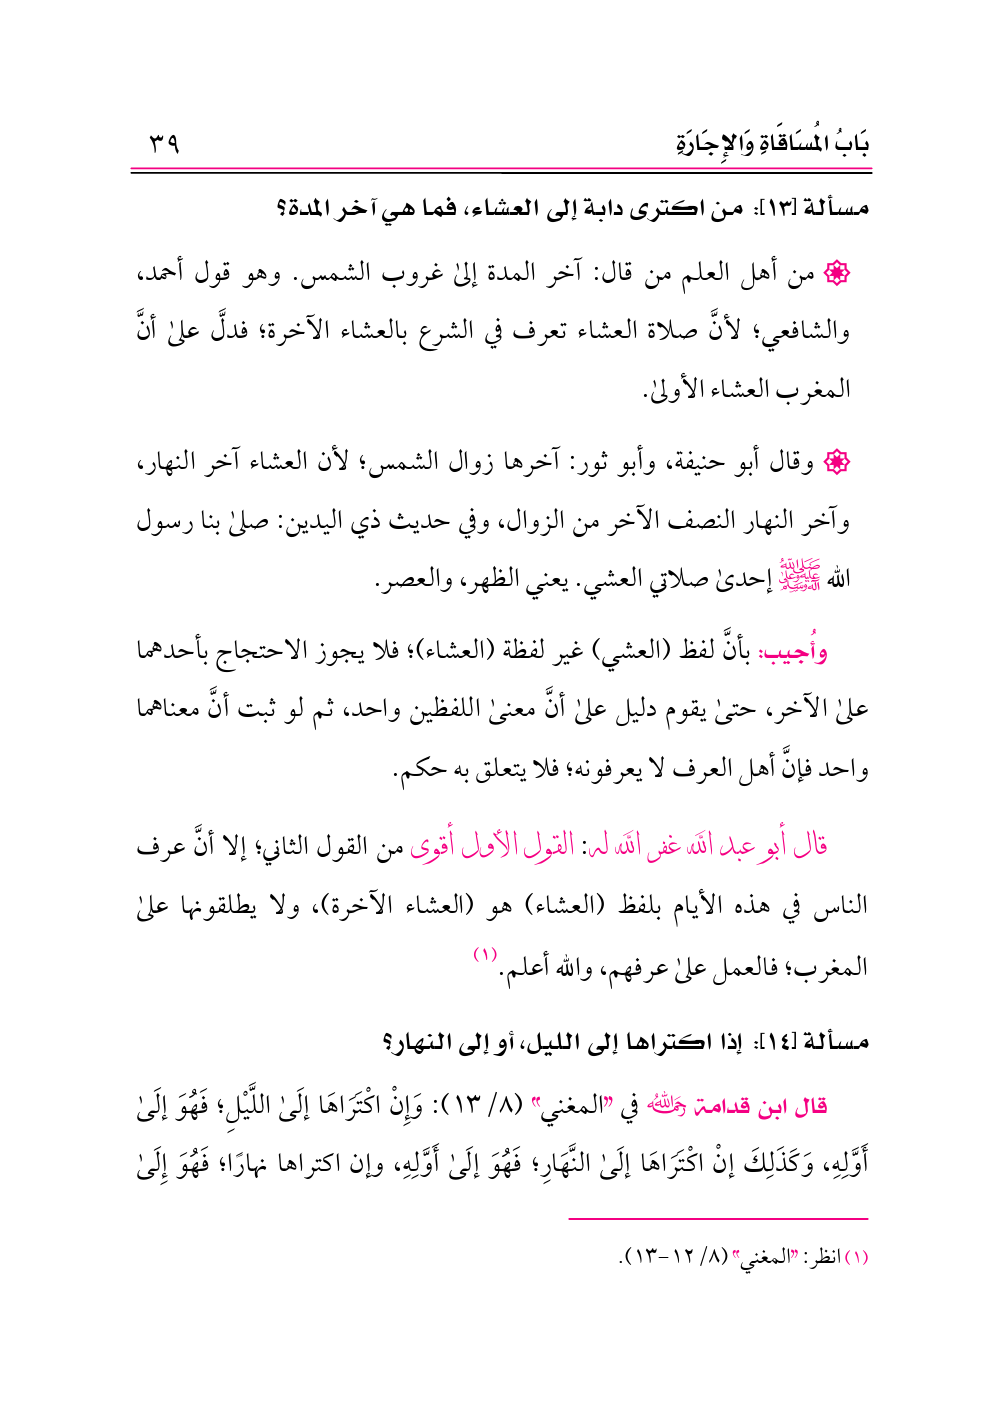 بَابُ المُسَاقَاةِ وَالإِجَارَةِ ٣٩
مسألة [١٣]: من اكترى دابة إلى العشاء، فما هي آخر المدة؟
من أهل العلم من قال: آخر المدة إلىٰ غروب الشمس. وهو قول أحمد،
والشافعي؛ لأنَّ صلاة العشاء تعرف في الشرع بالعشاء الآخرة؛ فدلَّ علىٰ أنَّ
المغرب العشاء الأولىٰ.
وقال أبو حنيفة، وأبو ثور: آخرها زوال الشمس؛ لأن العشاء آخر النهار،
وآخر النهار النصف الآخر من الزوال، وفي حديث ذي اليدين: صلىٰ بنا رسول
الله ﷺ إحدىٰ صلاتي العشي. يعني الظهر، والعصر.
وأُجيب: بأنَّ لفظ (العشي) غير لفظة (العشاء)؛ فلا يجوز الاحتجاج بأحدهما
علىٰ الآخر، حتىٰ يقوم دليل علىٰ أنَّ معنىٰ اللفظين واحد، ثم لو ثبت أنَّ معناهما
واحد فإنَّ أهل العرف لا يعرفونه؛ فلا يتعلق به حكم.
قال أبو عبد الله غفر الله له: القول الأول أقوى من القول الثاني؛ إلا أنَّ عرف
الناس في هذه الأيام بلفظ (العشاء) هو (العشاء الآخرة)، ولا يطلقونها علىٰ
المغرب؛ فالعمل علىٰ عرفهم، والله أعلم.(١)
مسألة [١٤]: إذا اكتراها إلى الليل، أو إلى النهار؟
قال ابن قدامة رحمه الله في "المغني" (٨/ ١٣): وَإِنْ اكْتَرَاهَا إلَىٰ اللَّيْلِ؛ فَهُوَ إلَىٰ
أَوَّلِهِ، وَكَذَلِكَ إنْ اكْتَرَاهَا إلَىٰ النَّهَارِ؛ فَهُوَ إلَىٰ أَوَّلِهِ، وإن اكتراها نهارًا؛ فَهُوَ إلَىٰ
(١) انظر: "المغني" (٨/ ١٢-١٣).